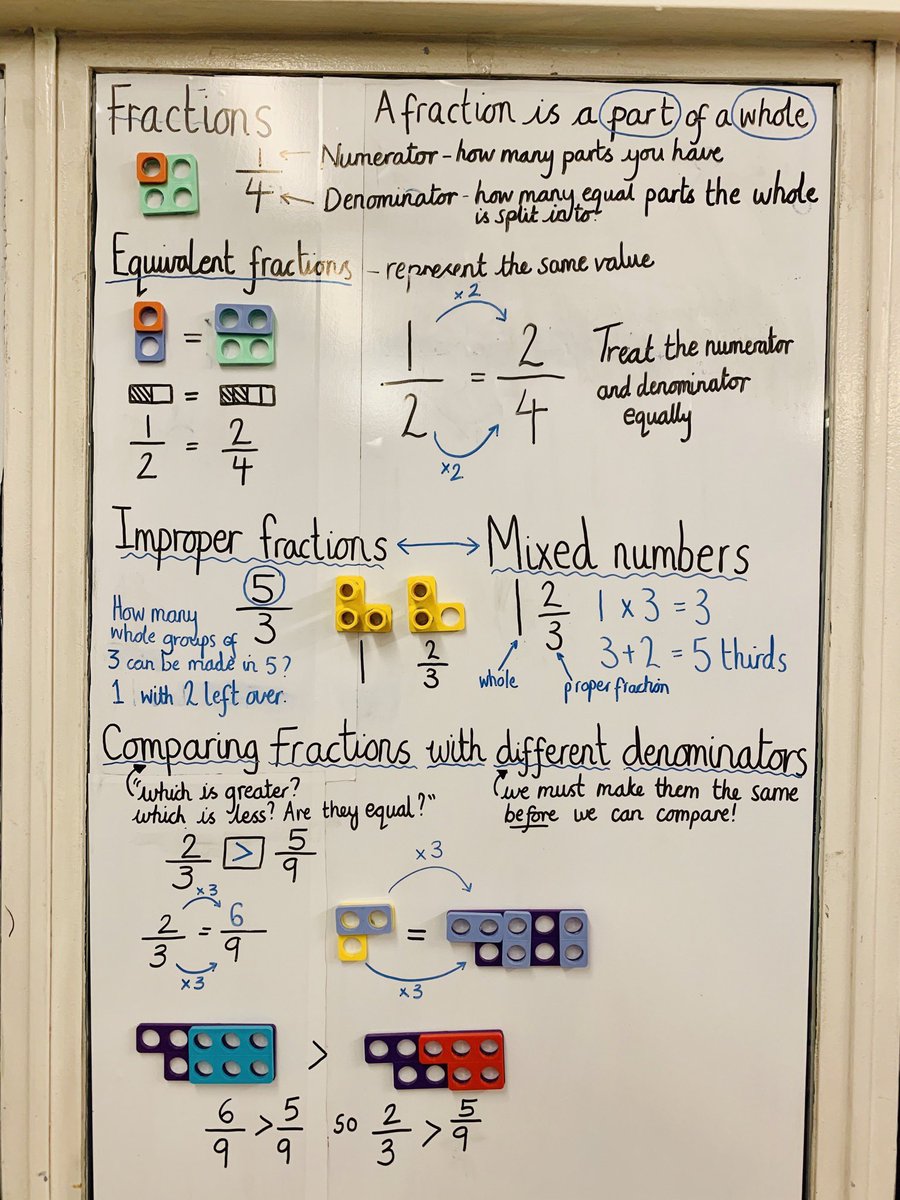 Fractions
A fraction is a part of a whole
1/4
Numerator - how many parts you have
Denominator - how many equal parts the whole
is split in to.
Equivalent fractions - represent the same value
=
=
1/2 = 2/4
×2
1/2 = 2/4
×2
Treat the numerator
and denominator
equally
Improper fractions ↔ Mixed numbers
5/3
How many
whole groups of
3 can be made in 5?
1 with 2 left over.
1 2/3
1 2/3
whole
proper fraction
1 x 3 = 3
3+2 = 5 thirds
Comparing Fractions with different denominators
"which is greater?
which is less? Are they equal?"
(we must make them the same
before we can compare!
2/3 > 5/9
×3
2/3 = 6/9
×3
×3
=
×3
>
6/9 > 5/9 so 2/3 > 5/9